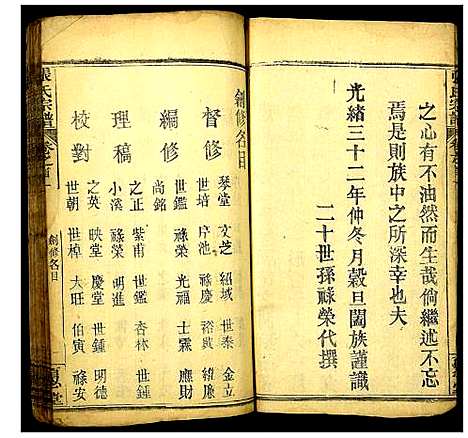 之心有不油然而生哉倘繼述不忘
焉是則族中之所深幸也夫
光緒三十二年仲冬月穀旦闔族謹識
二十世孫祿榮代撰
張氏宗譜
創修名目
創修名目
督修
琴堂 文芝 紹域 世泰 金立
世培 序池 祿慶 裕
編修
世鑑 祿榮 光福 士 應財
尚銘
理稿
之正 紫甫 世鑑 杏林 世鍾
小溪 祿榮 明進
校對
之英 映堂 慶堂 世鍾 明德
世朝 世棹 大旺 伯寅 祿安
堂